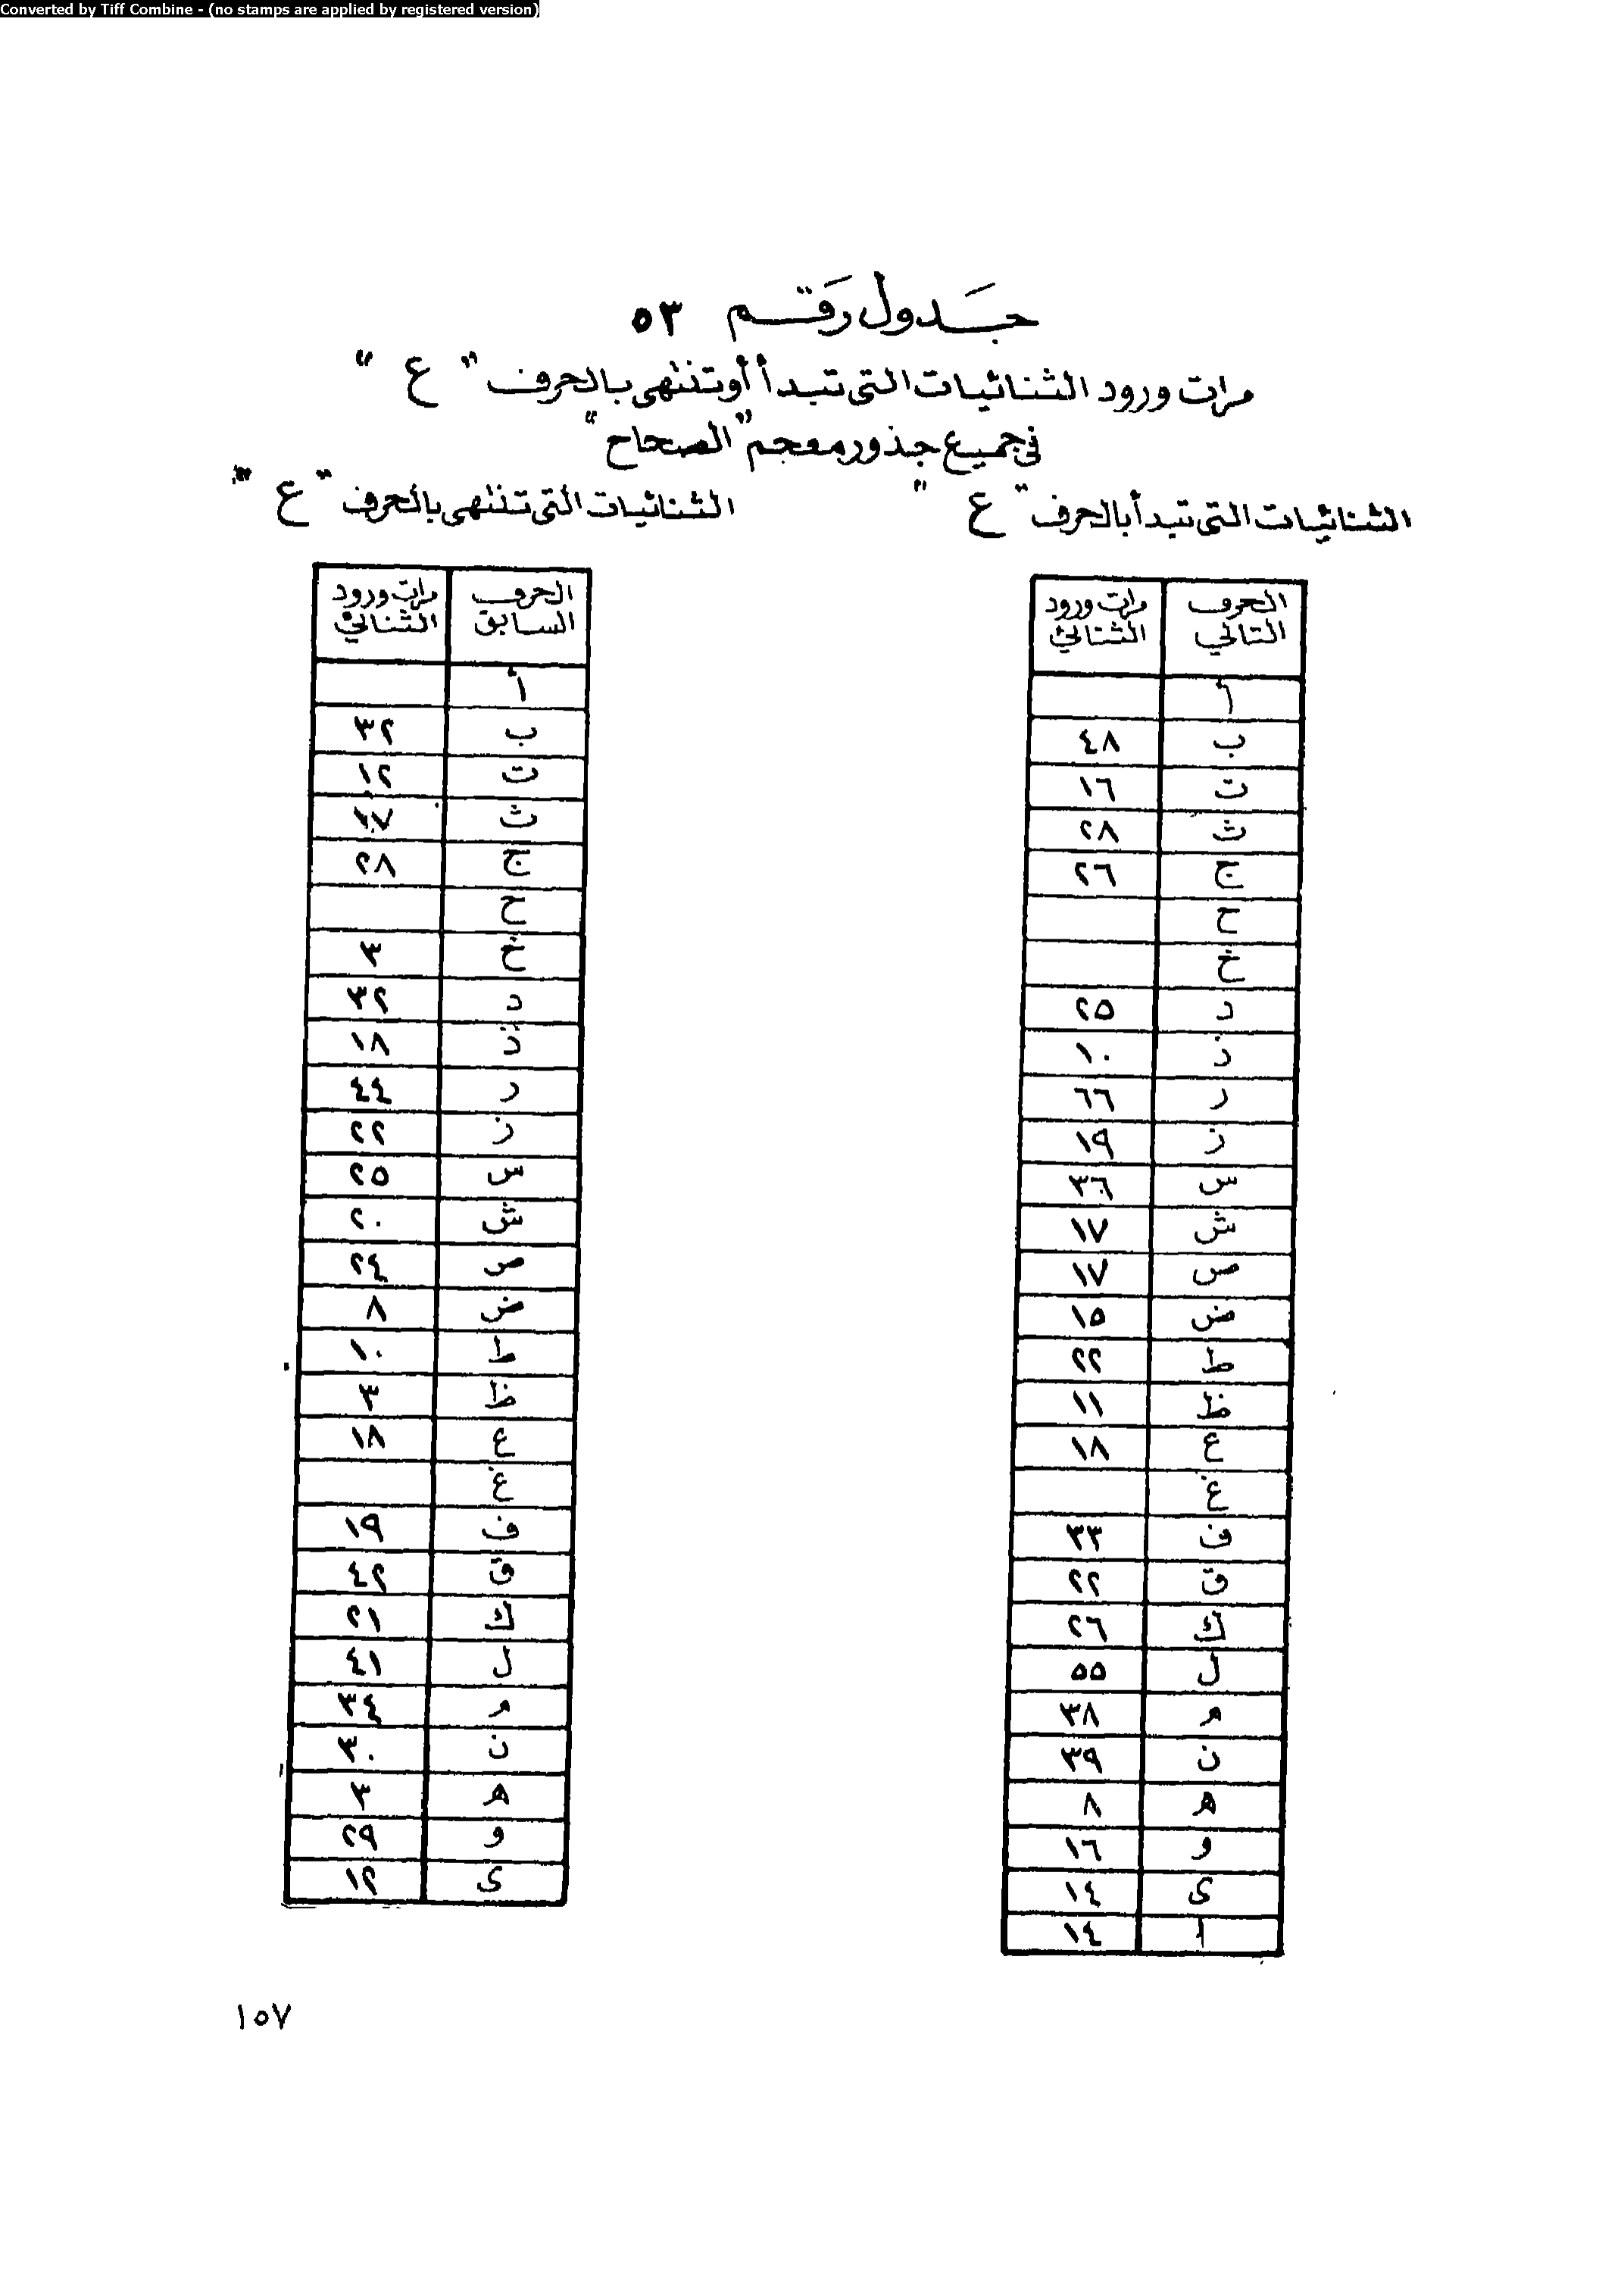 Converted by Tiff Combine - (no stamps are applied by registered version)
جَدول رَقم ٥٣
مرات ورود الثنائيات التى تبدأ أو تنتهى بالحرف " ع "
فى جميع جذور معجم "الصحاح"
الثنائيات التى تبدأ بالحرف " ع "
الحرف التالي مرات ورود الثنائي
أ
ب ٤٨
ت ١٦
ث ٢٨
ج ٢٦
ح
خ
د ٢٥
ذ ١٠
ر ٦٦
ز ١٩
س ٣٦
ش ١٧
ص ١٧
ض ١٥
ط ٢٢
ظ ١١
ع ١٨
غ
ف ٣٣
ق ٢٢
ك ٢٦
ل ٥٥
م ٣٨
ن ٣٩
ه ٨
و ١٦
ى ١٤
ا ١٤
الثنائيات التى تنتهى بالحرف " ع "
الحرف السابق مرات ورود الثنائي
أ
ب ٣٢
ت ١٢
ث
ج ٢٨
ح
خ ٣
د ٣٢
ذ ١٨
ر ٤٤
ز ٢٢
س ٢٥
ش ٢٠
ص ٢٤
ض ٨
ط ١٠
ظ ٣
ع ١٨
غ
ف ١٩
ق ٤٢
ك ٢١
ل ٤١
م ٣٤
ن ٣٠
ه ٣
و ٢٩
ى ١٢
١٥٧